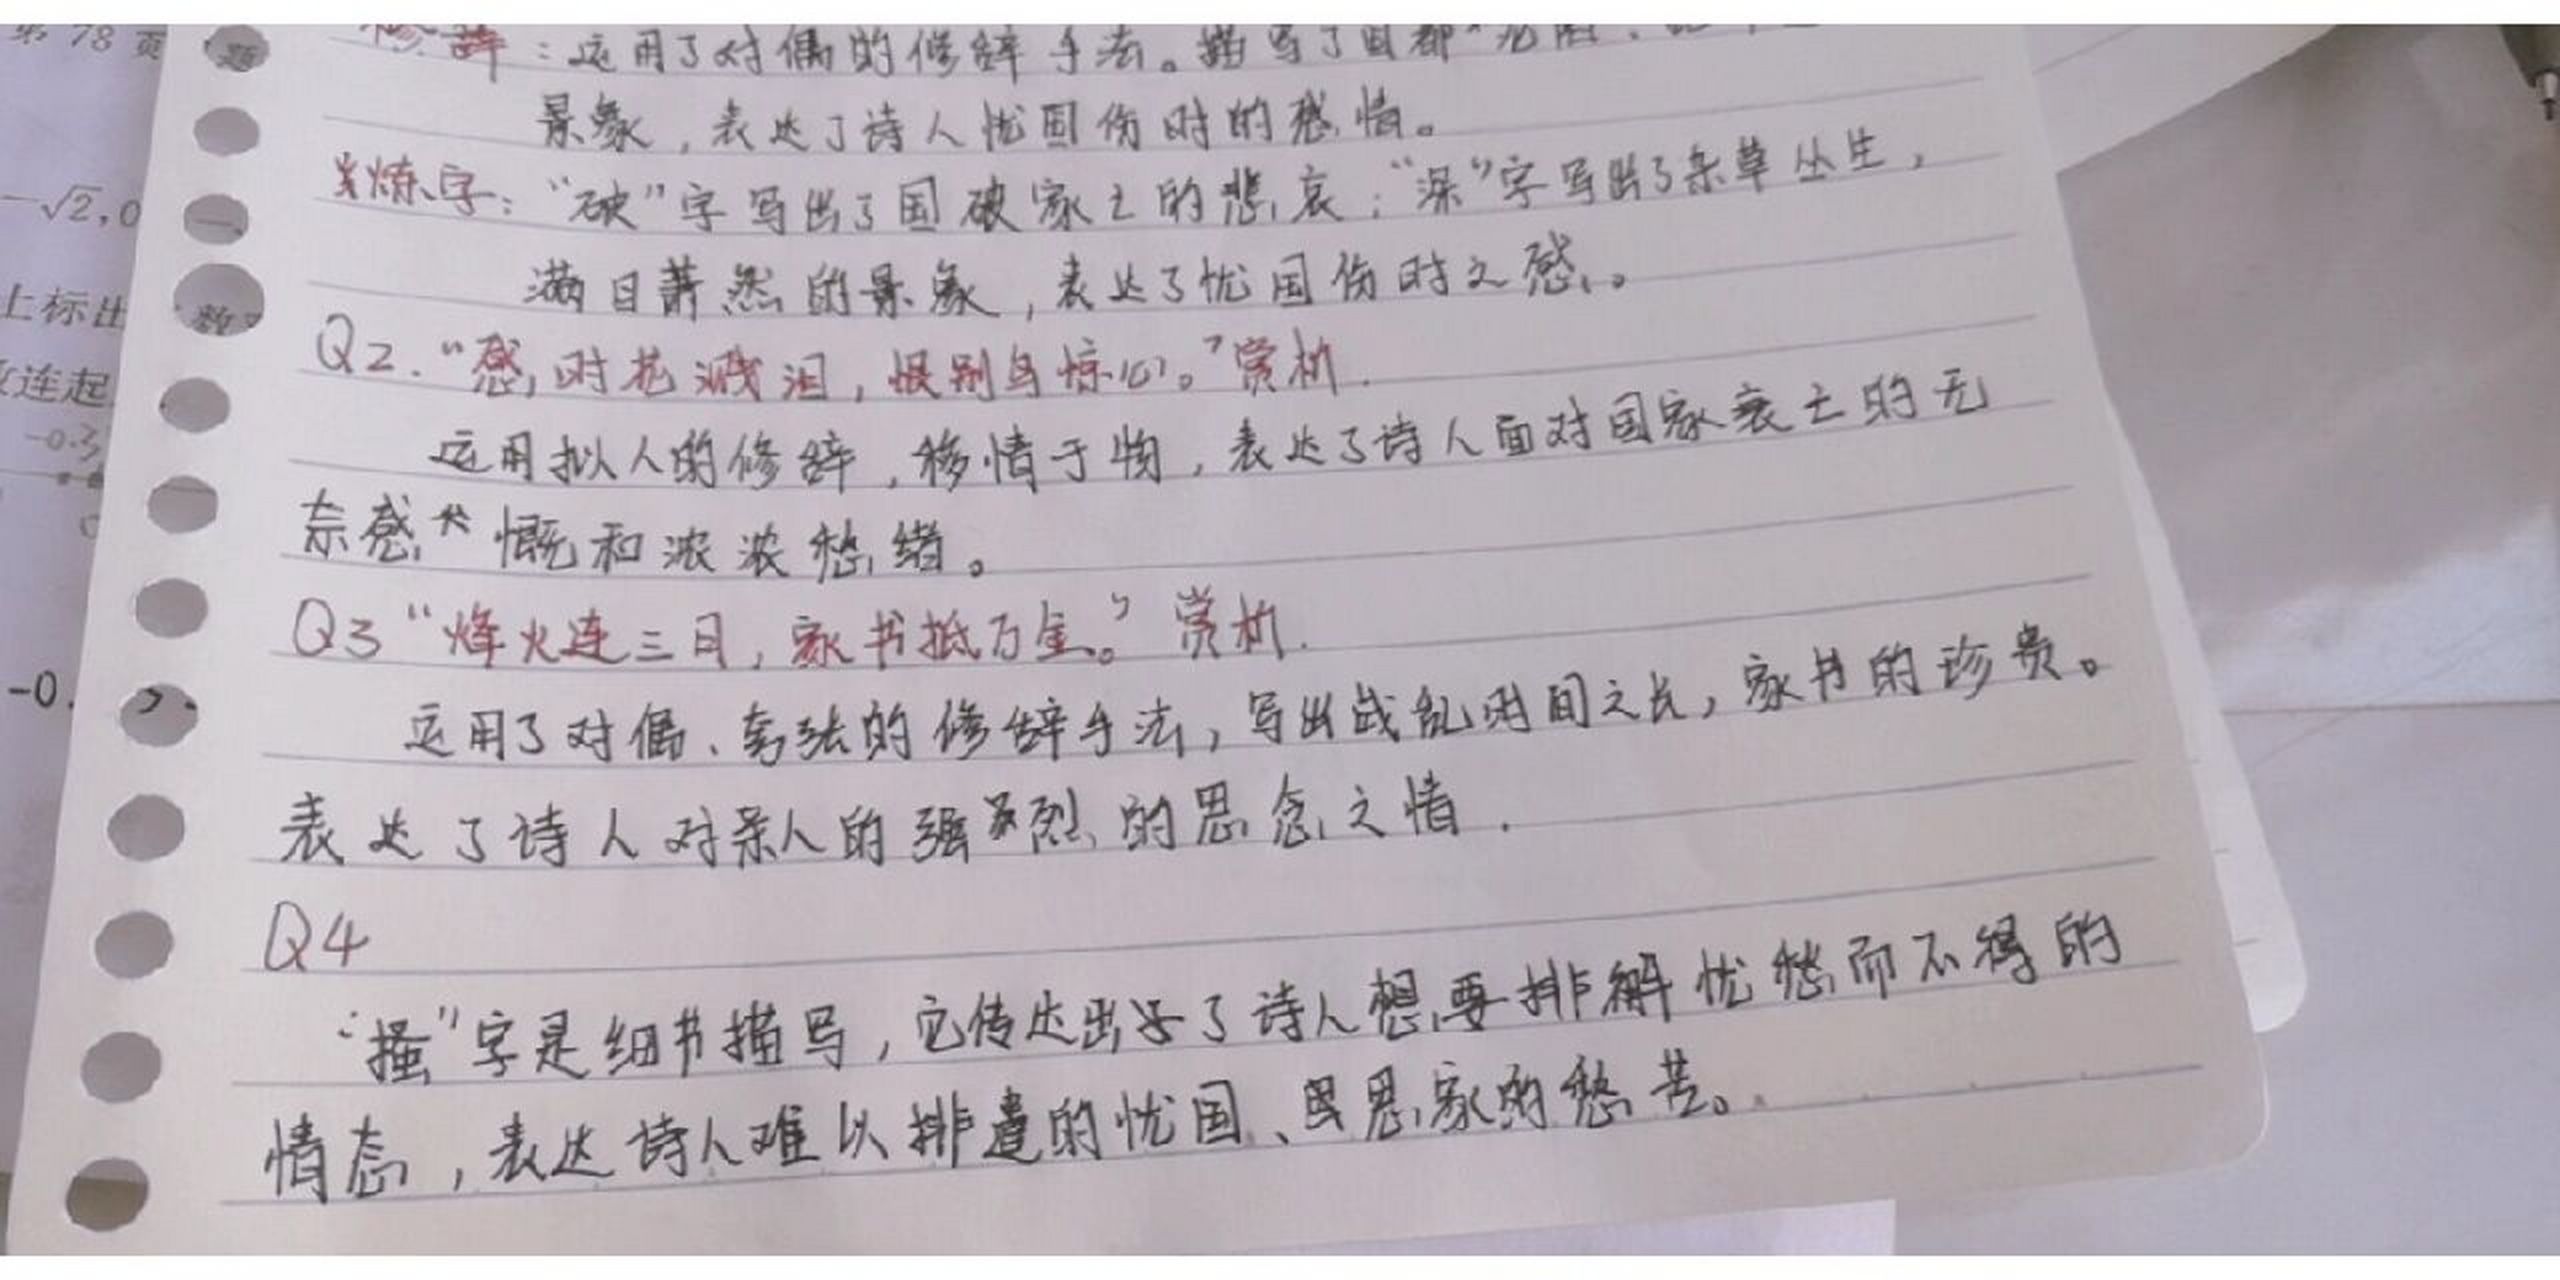 第 78 页
修辞：运用了对偶的修辞手法。描写了国都
景象，表达了诗人忧国伤时的感情。
炼字："破"字写出了国破家亡的悲哀；"深"字写出了杂草丛生，
满目萧然的景象，表达了忧国伤时之感。
Q2."感时花溅泪，恨别鸟惊心。"赏析.
运用拟人的修辞，移情于物，表达了诗人面对国家衰亡的无
奈感慨和浓浓愁绪。
Q3"烽火连三月，家书抵万金。"赏析.
运用了对偶、夸张的修辞手法，写出战乱时间之长，家书的珍贵。
表达了诗人对亲人的强烈的思念之情.
Q4
"搔"字是细节描写，它传达出了诗人想要排解忧愁而不得的
情态，表达诗人难以排遣的忧国、思家的愁苦。
题
一、
数
-√2,0
上标出
连起
-0.3
-0.